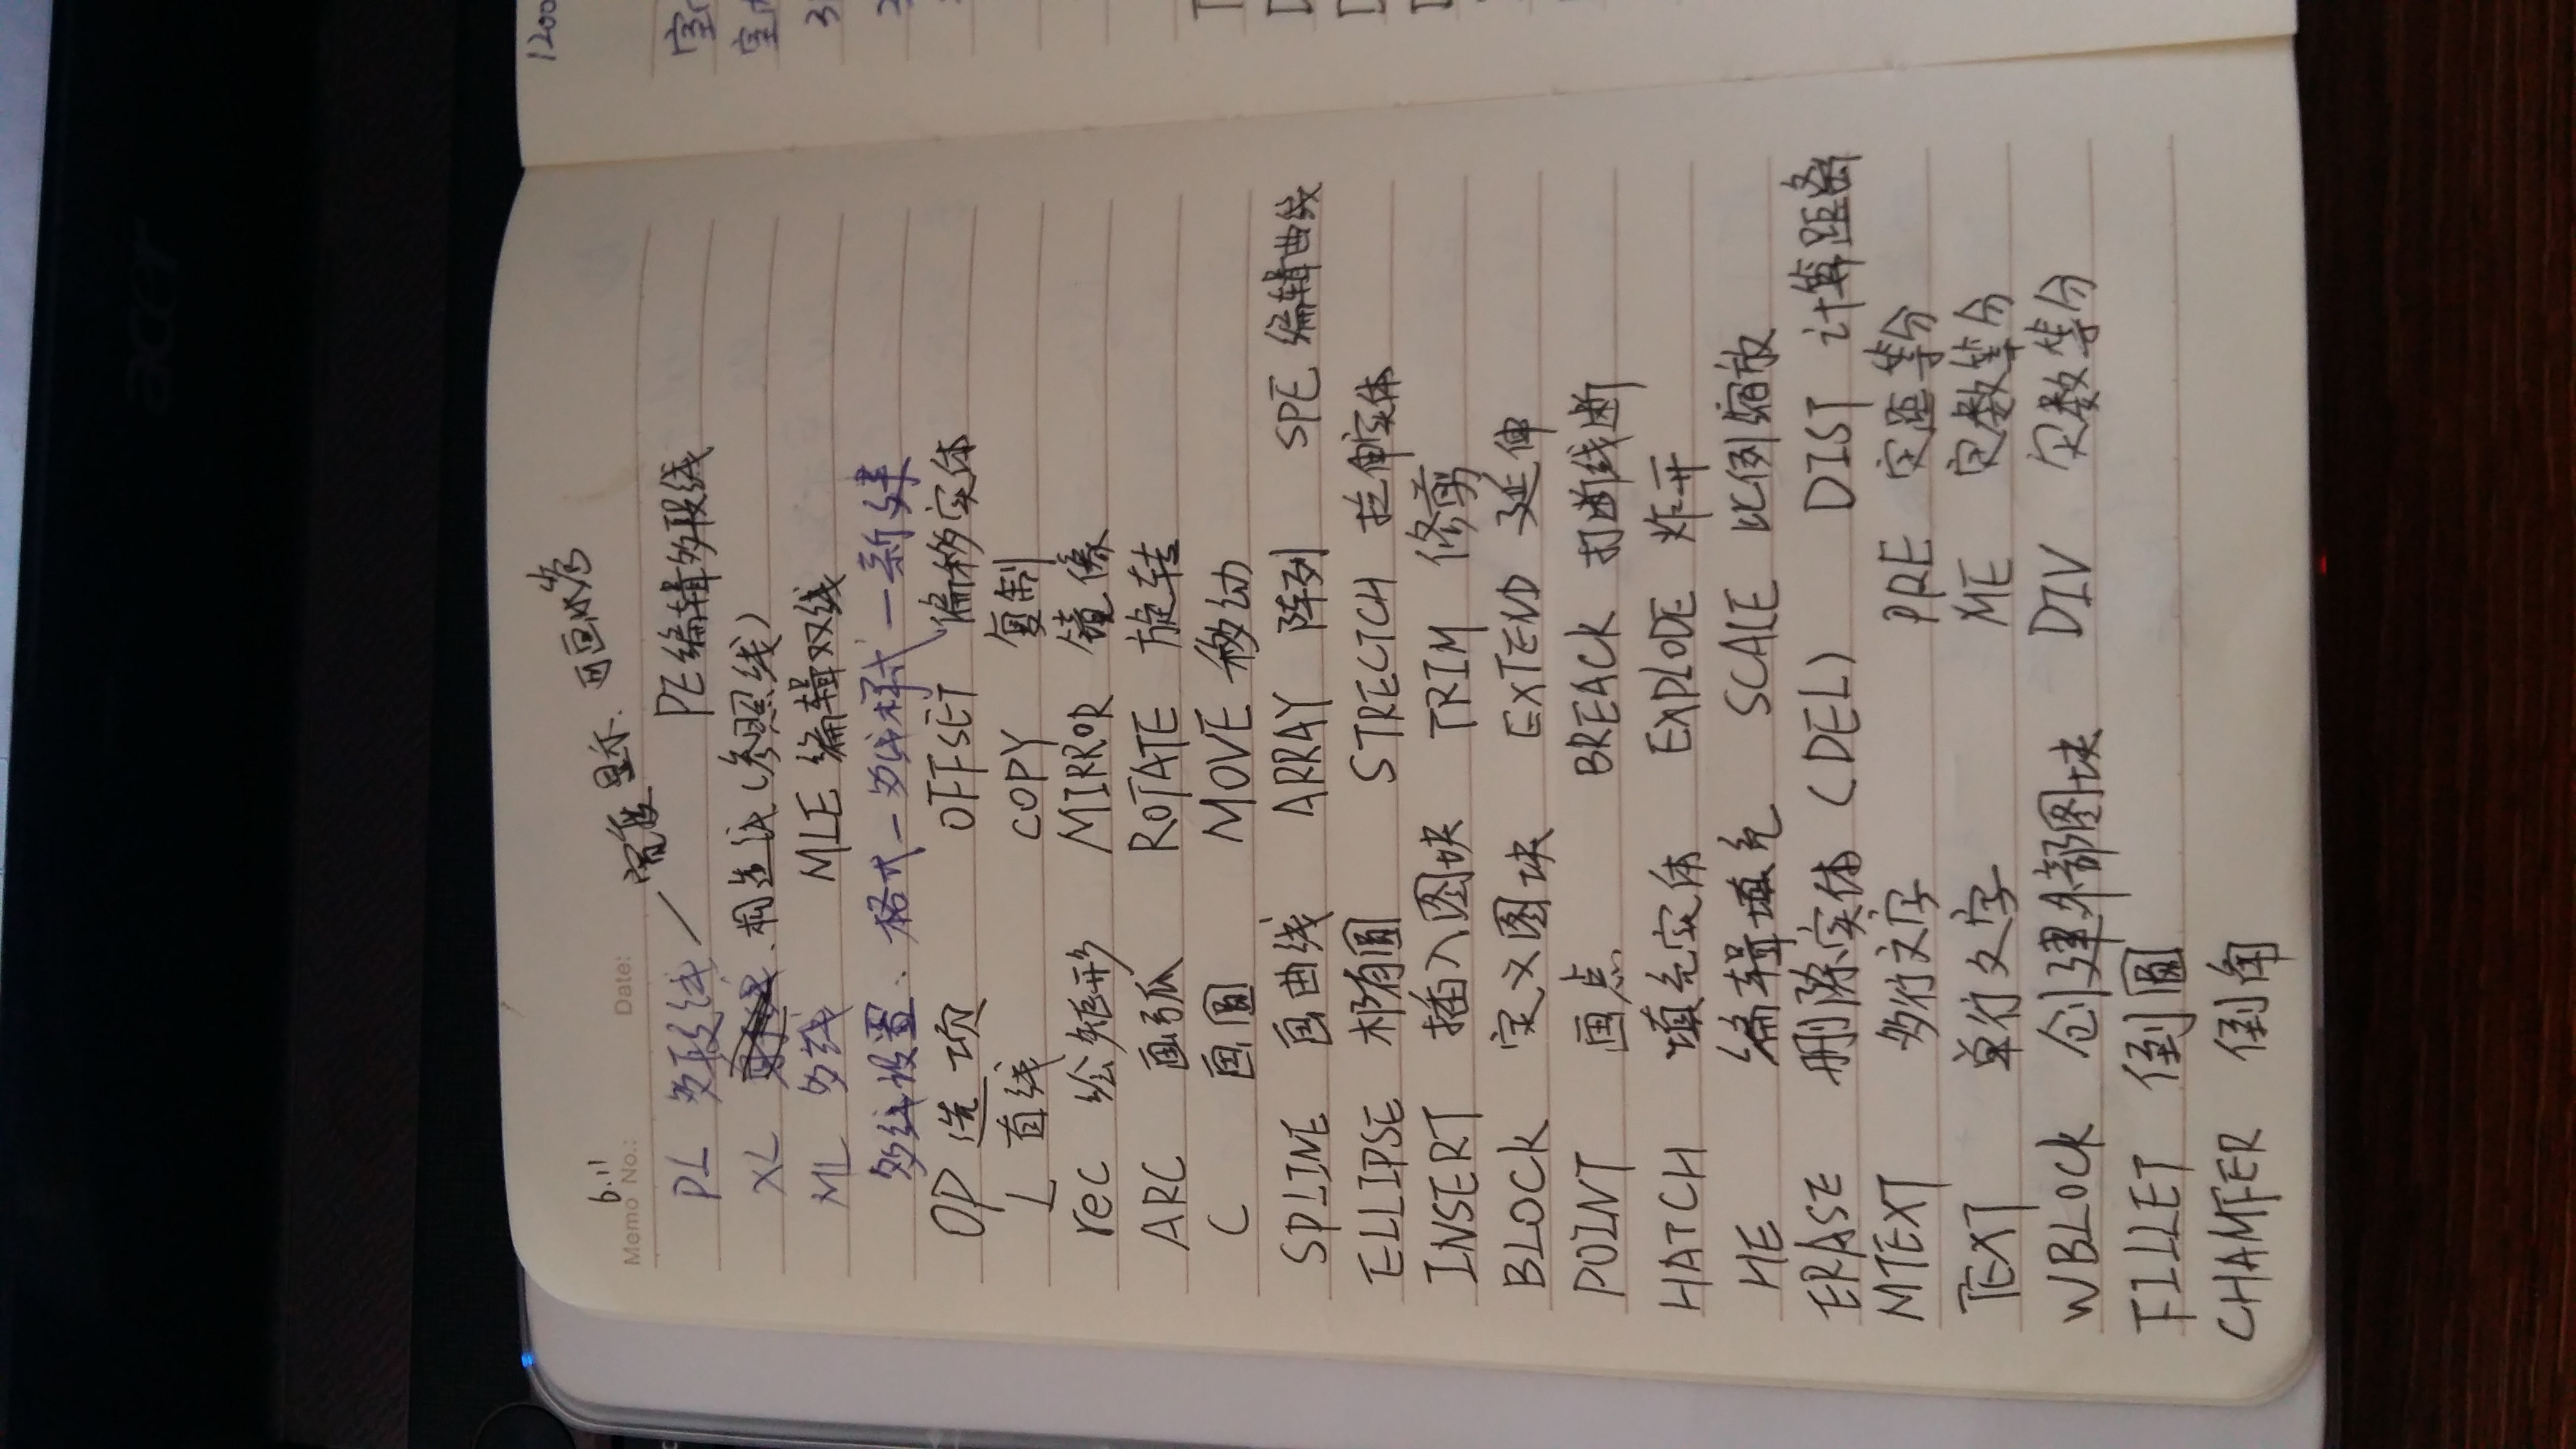 acer
1200
6.11
Memo No.: Date:
显示. 画
PL 多段线 PE 编辑多段线
XL 构造线(参照线)
ML 多线 MLE 编辑双线
多线设置: 格式-多线样式-新建
OP 选项 OFFSET 偏移实体
L 直线 COPY 复制
rec 绘矩形 MIRROR 镜像
ARC 画弧 ROTATE 旋转
C 画圆 MOVE 移动
SPLINE 画曲线 ARRAY 阵列 SPE 编辑曲线
ELLIPSE 椭圆 STRECTCH 拉伸实体
INSERT 插入图块 TRIM 修剪
BLOCK 定义图块 EXTEND 延伸
POINT 画点 BREACK 打断线断
HATCH 填充实体 EXPLODE 炸开
HE 编辑填充 SCALE 比例缩放
ERASE 删除实体 (DEL) DIST 计算距离
MTEXT 多行文字 PRE 定距等分
TEXT 单行文字 ME 定数等分
WBLOCK 创建外部图块 DIV 定数等分
FILLET 倒圆
CHAMFER 倒角